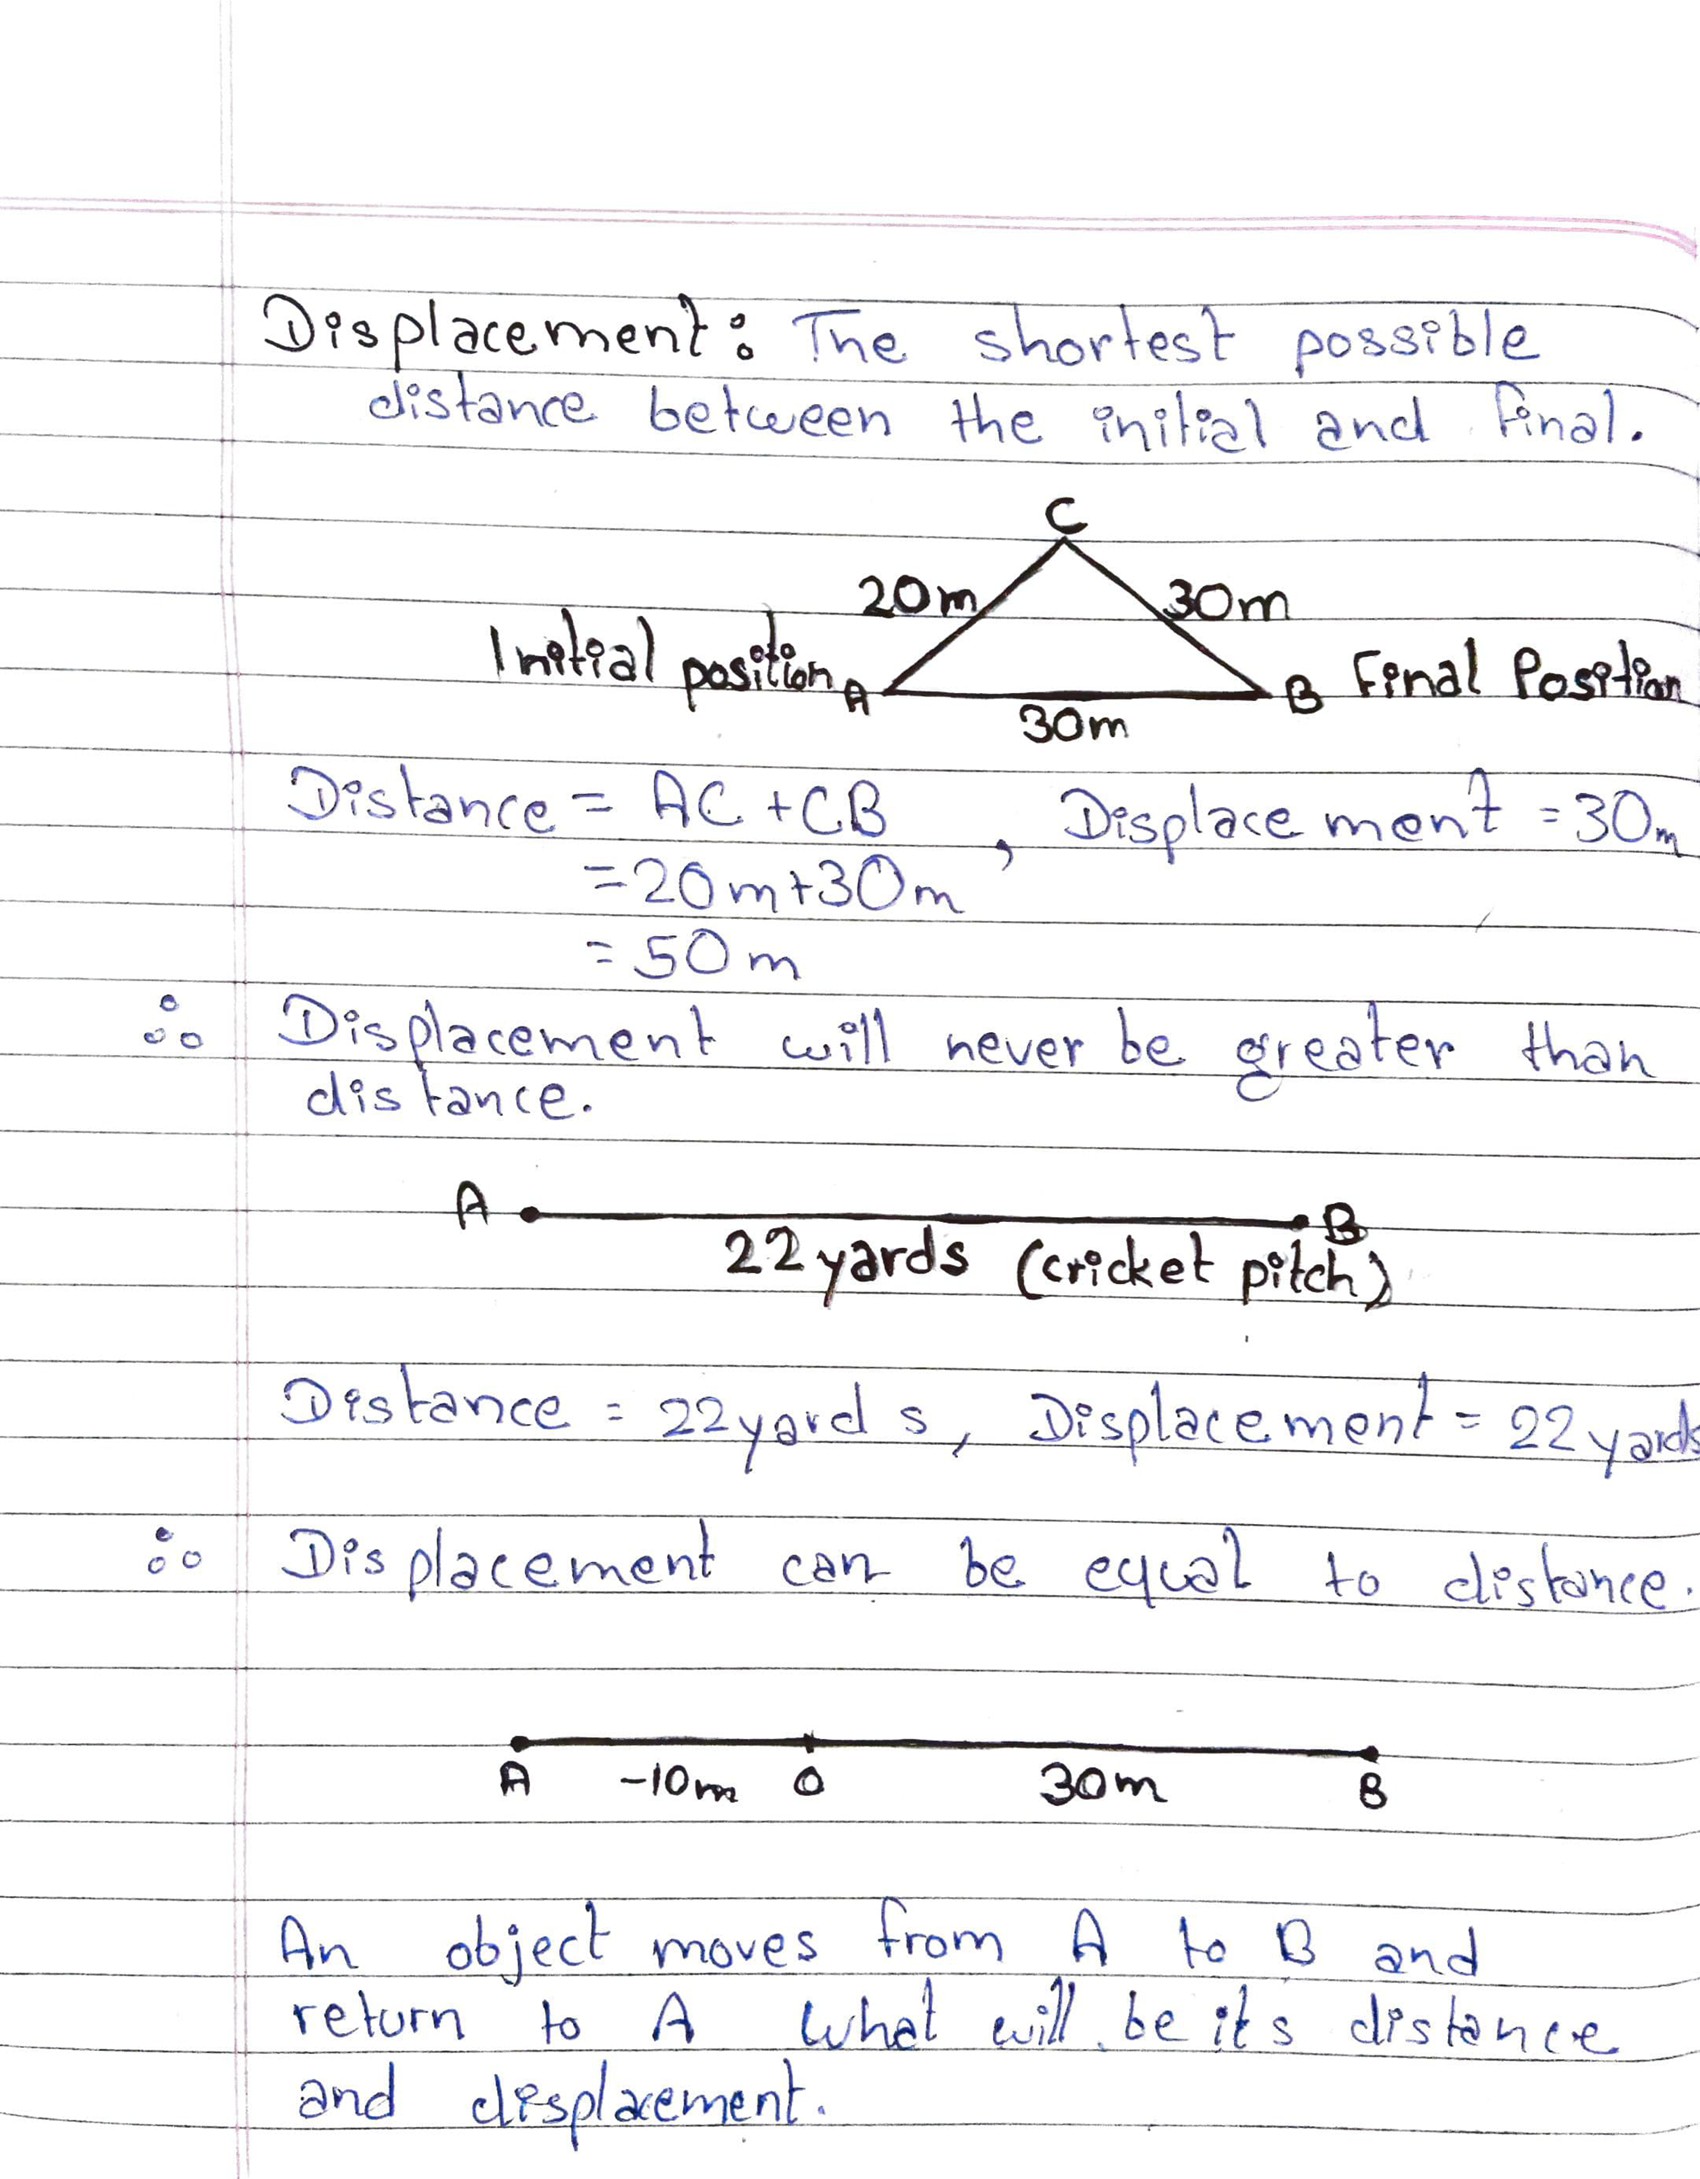 Displacement: The shortest possible
distance between the initial and final.
C
20m 30m
Initial position A B Final Position
30m
Distance = AC + CB , Displacement = 30m
= 20m+30m
= 50m
∴ Displacement will never be greater than
distance.
A B
22 yards (cricket pitch)
Distance = 22 yards, Displacement = 22 yards
∴ Displacement can be equal to distance.
A -10m O 30m B
An object moves from A to B and
return to A what will be its distance
and displacement.